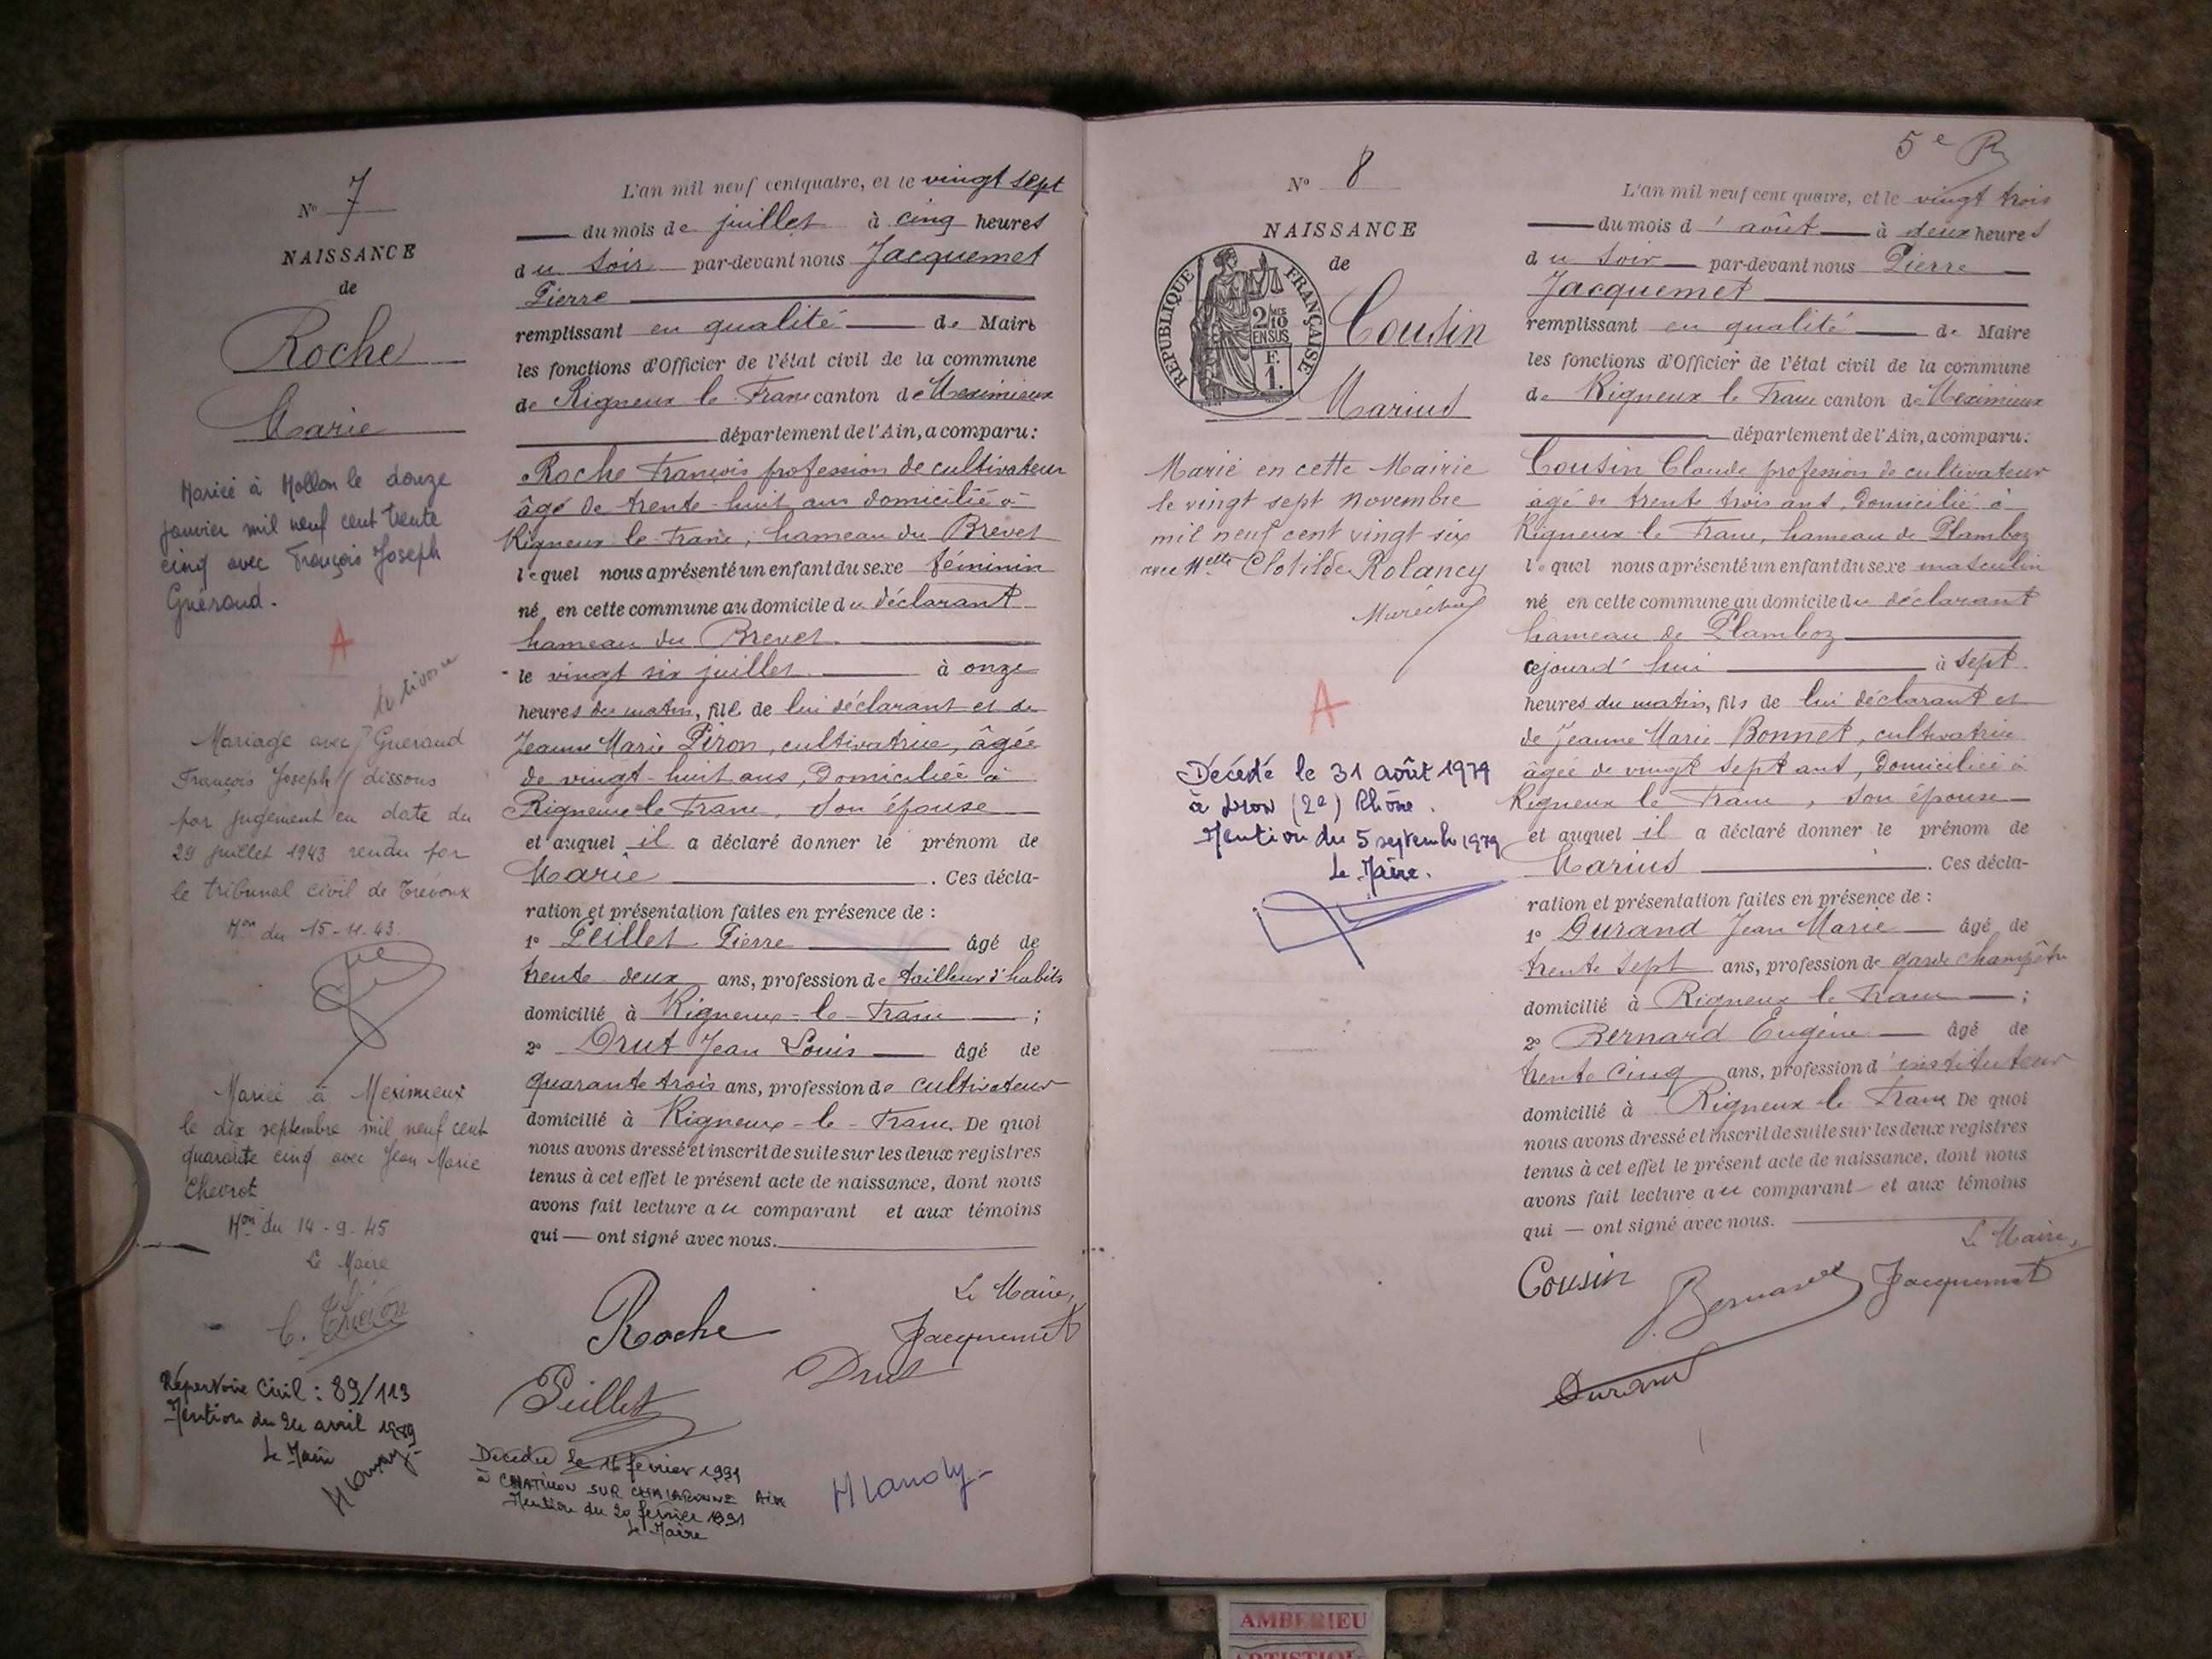 N° 7
NAISSANCE
de
Roche
Marie
Mariée à Mollon le douze
janvier mil neuf cent trente
cinq avec François Joseph
Guéraud.
A
Mariage avec Gueraud
François Joseph dissous
par jugement en date du
29 juillet 1943 rendu par
le tribunal civil de Trévoux
Mon du 15-11.43.
Mariée à Meximieux
le dix septembre mil neuf cent
quarante cinq avec Jean Marie
Chevrot
Mon du 14-9-45
Le Maire
Répertoire Civil : 89/113
Mention du 24 avril 1989
Le Maire
L'an mil neuf cent quatre, et le vingt sept
du mois de juillet à cinq heures
du soir par-devant nous Jacquemet
Pierre
remplissant en qualité de Maire
les fonctions d'Officier de l'état civil de la commune
de Rigneux le Franc canton de Meximieux
département de l'Ain, a comparu :
Roche François profession de cultivateur
âgé de trente-huit ans domicilié à
Rigneux le Franc, hameau du Brevet
lequel nous a présenté un enfant du sexe féminin
né en cette commune au domicile du déclarant
hameau du Brevet
le vingt six juillet à onze
heures du matin, fille de lui déclarant et de
Jeanne Marie Piron, cultivatrice, âgée
de vingt-huit ans, domiciliée à
Rigneux le Franc, son épouse
et auquel il a déclaré donner le prénom de
Marie . Ces décla-
ration et présentation faites en présence de :
1° Peillet Pierre âgé de
trente deux ans, profession de tailleur d'habits
domicilié à Rigneux-le-Franc ;
2° Drut Jean Louis âgé de
quarante trois ans, profession de cultivateur
domicilié à Rigneux-le-Franc. De quoi
nous avons dressé et inscrit de suite sur les deux registres
tenus à cet effet le présent acte de naissance, dont nous
avons fait lecture au comparant et aux témoins
qui — ont signé avec nous.
Le Maire,
Roche
Jacquemet
Drut
Peillet
Décédée le 16 février 1991
à CHATILLON SUR CHALARONNE Ain
Mention du 20 février 1991
Le Maire
5e R
N° 8
NAISSANCE
de
REPUBLIQUE FRANÇAISE
2/10 EN SUS
F. 1.
Cousin
Marius
Marié en cette Mairie
le vingt sept novembre
mil neuf cent vingt six
avec Melle Clotilde Rolancy
A
Décédé le 31 août 1979
à Lyon (2e) Rhône.
Mention du 5 septembre 1979
Le Maire.
L'an mil neuf cent quatre, et le vingt trois
du mois d'août à deux heures
du soir par-devant nous Pierre
Jacquemet
remplissant en qualité de Maire
les fonctions d'Officier de l'état civil de la commune
de Rigneux le Franc canton de Meximieux
département de l'Ain, a comparu :
Cousin Claude profession de cultivateur
âgé de trente trois ans, domicilié à
Rigneux le Franc, hameau de Plamboz
lequel nous a présenté un enfant du sexe masculin
né en cette commune au domicile du déclarant
hameau de Plamboz
cejourd'hui à sept
heures du matin, fils de lui déclarant et
de Jeanne Marie Bonnet, cultivatrice
âgée de vingt sept ans, domiciliée à
Rigneux le Franc, son épouse
et auquel il a déclaré donner le prénom de
Marius . Ces décla-
ration et présentation faites en présence de :
1° Durand Jean Marie âgé de
trente sept ans, profession de garde champêtre
domicilié à Rigneux le Franc ;
2° Bernard Eugène âgé de
trente cinq ans, profession d'instituteur
domicilié à Rigneux le Franc De quoi
nous avons dressé et inscrit de suite sur les deux registres
tenus à cet effet le présent acte de naissance, dont nous
avons fait lecture au comparant et aux témoins
qui — ont signé avec nous.
Le Maire,
Cousin
Bernard
Jacquemet
Durand
AMBERIEU